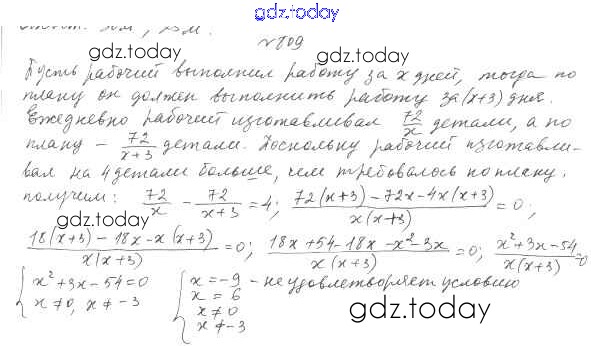 gdz.today
№ 809
gdz.today
Пусть рабочий выполнил работу за x дней, тогда по
плану он должен выполнить работу за (x+3) дня.
Ежедневно рабочий изготавливал 72/x детали, а по
плану – 72/(x+3) детали. Поскольку рабочий изготавли-
вал на 4 детали больше, чем требовалось по плану,
получим: 72/x - 72/(x+3) = 4; (72(x+3) - 72x - 4x(x+3))/(x(x+3)) = 0;
gdz.today
(18(x+3) - 18x - x(x+3))/(x(x+3)) = 0; (18x + 54 - 18x - x² - 3x)/(x(x+3)) = 0; (x² + 3x - 54)/(x(x+3)) = 0
{ x² + 3x - 54 = 0 { x = -9 - не удовлетворяет условию
x ≠ 0, x ≠ -3 x = 6
x ≠ 0
x ≠ -3
gdz.today